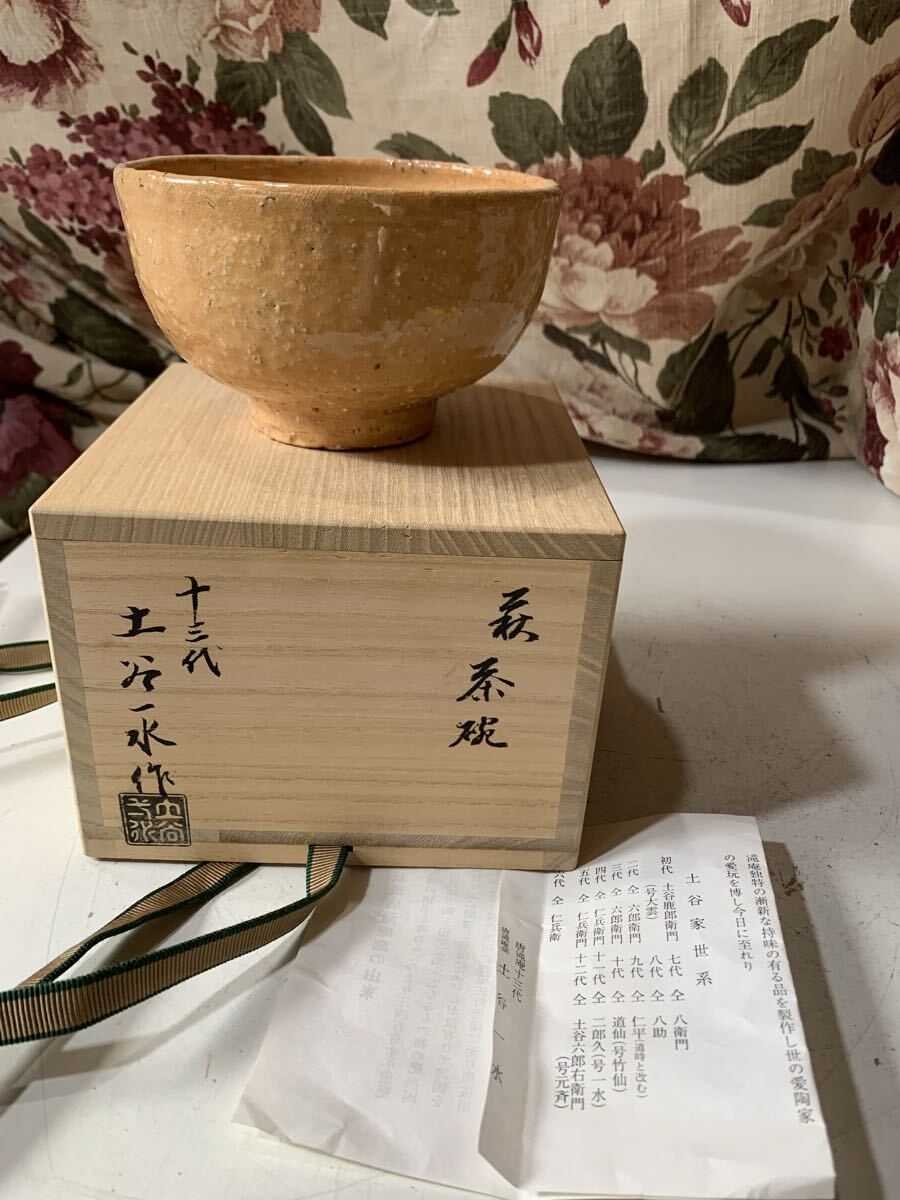 萩茶碗
十三代
土谷一水作
滝庵独特の漸新な持味の有る品を製作し世の愛陶家
の愛玩を博し今日に至れり
土谷家世系
初代 土谷鹿郎衛門 七代 仝 八衛門
(号大雲) 八代 仝 八助
二代 仝 六郎衛門 九代 仝 仁平(道時と改む)
三代 仝 六郎衛門 十代 仝 道仙(号竹仙)
四代 仝 仁兵衛門 十一代 仝 二郎久(号一水)
五代 仝 仁兵衛門 十二代 仝 土谷六郎右衛門
六代 仝 仁兵衛 (号元斉)
唐滝庵十三代
土谷一水